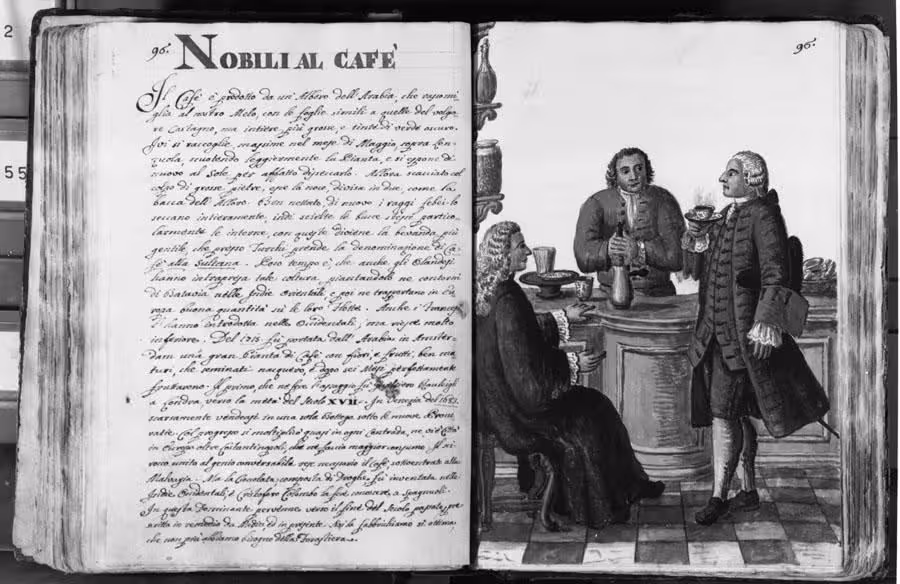 2
55
96.
NOBILI AL CAFÈ
Il Cafè è prodotto da un'Albero dell'Arabia, che rasomi-
glia al nostro Melo, con le foglie simili a quelle del volga-
re Castagno, ma intiere, più grosse, e tinte di verde oscuro.
Ivi si raccoglie, massime nel mese di Maggio, sopra len-
zuola, scuotendo leggiermente la Pianta, e si espone di
nuovo al Sole per affatto disecarlo. Allora scacciato col
colpo di grosse pietre, la noce, divisa in due, come la
bacca dell'Alloro. Ben nettato, di nuovo i raggi
secano intieramente, indi scielte le buce
larmente le interne, con queste diviene la bevanda più
gentile, che presso Turchi prende la denominazione di Ca-
fè alla Sultana. tempo è, che anche gli Olandesi
hanno intrapresa tale coltura, piantandolo ne contorni
di Batavia nelle Indie Orientali, e poi ne trasportano in Eu-
ropa buona quantità su le loro Flotte. Anche i Francesi
l'hanno introdotta nelle Occidentali, ma riesce molto
inferiore. Del 1715. fu portata dall'Arabia in Amster-
dam una gran Pianta di Cafè con fiori, e frutti, ben ma-
turi, che seminati nacquero, e dopo sei Mesi perfettamente
fruttarono. Il primo che
a Londra, verso la metà del secolo XVII. In Venezia del
scarsamente vendevasi in una sola Bottega sotto le nuove Procu-
ratie. Col progresso si moltiplicò quasi in ogni Contrada, ne v'è Città
in Europa oltre Costantinopoli, che ne faccia maggior consumo. Il
unito al genio conversabile, rese necessario il cafè, sottoentrato alla
Malvagia. Ma la Ciocolata, composta di Droghe, fu inventata nelle
Indie Occidentali, e Cristoforo Colombo la fece conoscere a Spagnuoli.
In questa Dominante pervenne verso il fine del Secolo
in rimedio da Medici ed in presente. Noi la fabbrichiamo sì ottima,
che non più abbiamo bisogno della Forastiera.
96.